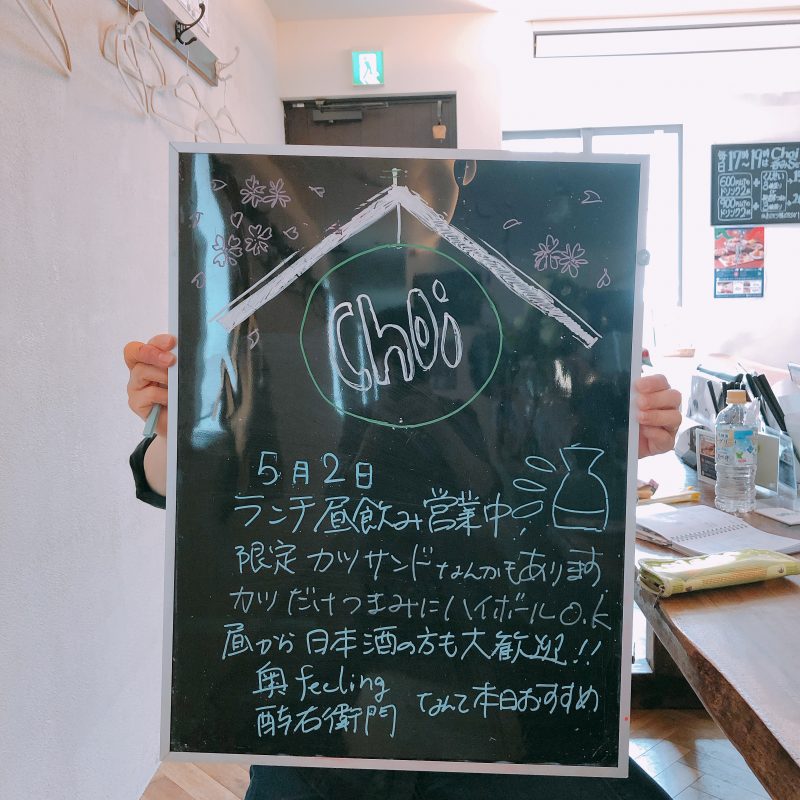 Choi
5月2日
ランチ昼飲み営業中
限定 カツサンドなんかもあります
カツだけつまみにハイボールO.K
昼から日本酒の方も大歓迎!!
奥 feeling
酔右衛門 なんて本日おすすめ
毎日17時〜19時 Choi
600円で
ドリンク2
900円で
ドリンク3